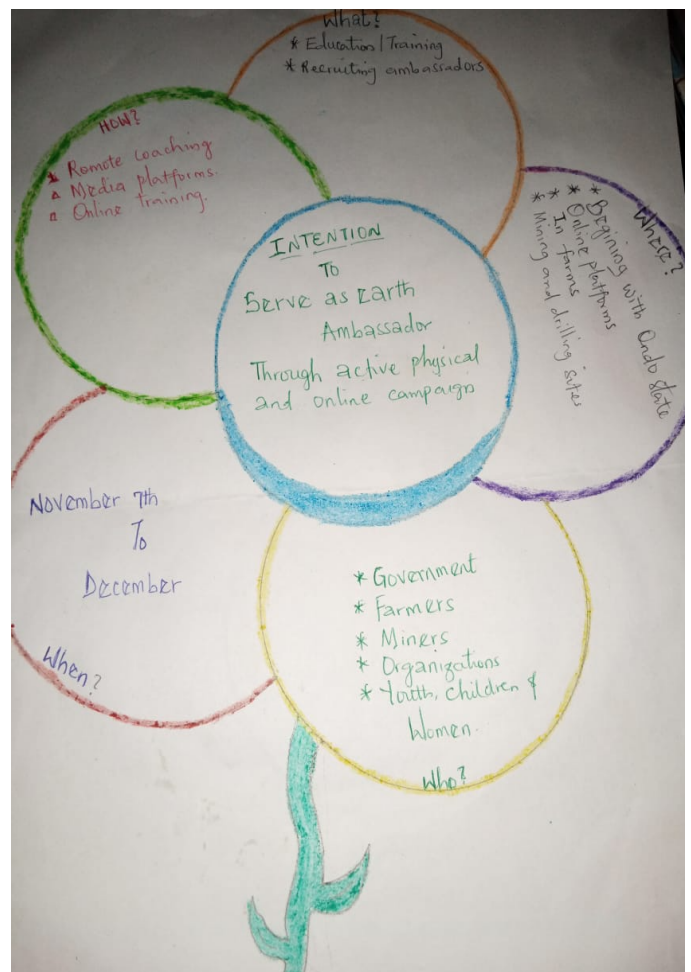 What?
* Education/Training
* Recruiting ambassadors
HOW?
* Remote coaching
* Media platforms.
* Online training.
Where?
* Begining with Ondo state
* Online platforms
* In farms
* Mining and drilling sites
INTENTION
TO
Serve as Earth
Ambassador
Through active physical
and online campaign
November 7th
To
December
When?
* Government
* Farmers
* Miners
* Organizations
* Youth, children &
Women.
Who?